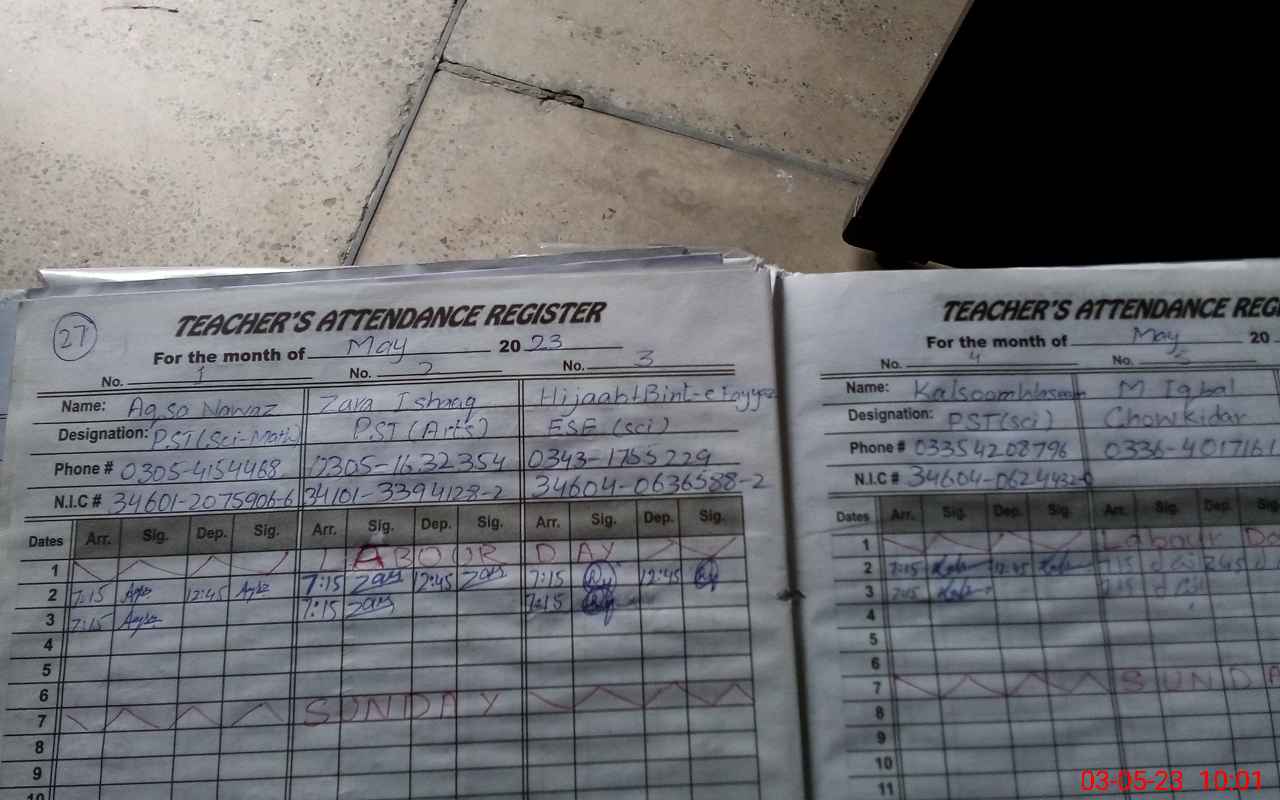 27
TEACHER'S ATTENDANCE REGISTER
For the month of May 2023
No. 1 No. 2 No. 3
Name: Aqsa Nawaz Zara Ishaq Hijaab Bint-e Fayyaz
Designation: P.ST (Sci-Math) P.ST (Arts) ESE (sci)
Phone # 0305-4154468 0305-1632354 0343-1755229
N.I.C # 34601-2075906-6 34101-3394128-2 34604-0636588-2
Dates Arr. Sig. Dep. Sig. Arr. Sig. Dep. Sig. Arr. Sig. Dep. Sig.
1 LABOUR DAY
2 7:15 12:45 7:15 Zara 12:45 Zara 7:15 12:45
3 7:15 7:15 Zara 7:15
4
5
6
7 SUNDAY
8
9
10
TEACHER'S ATTENDANCE REGI
For the month of May 20
No. 4 No. 5
Name: Kalsoom Hassan M Iqbal
Designation: PST(sci) Chowkidar
Phone # 03354208796 0336-401716
N.I.C # 34604-0624432-0
Dates Arr. Sig. Dep. Sig. Arr. Sig. Dep.
1 Labour Da
2 7:15 12:45 7:15 12:45
3 7:15 7:15
4
5
6
7 SUNDA
8
9
10
11
03-05-23 10:01